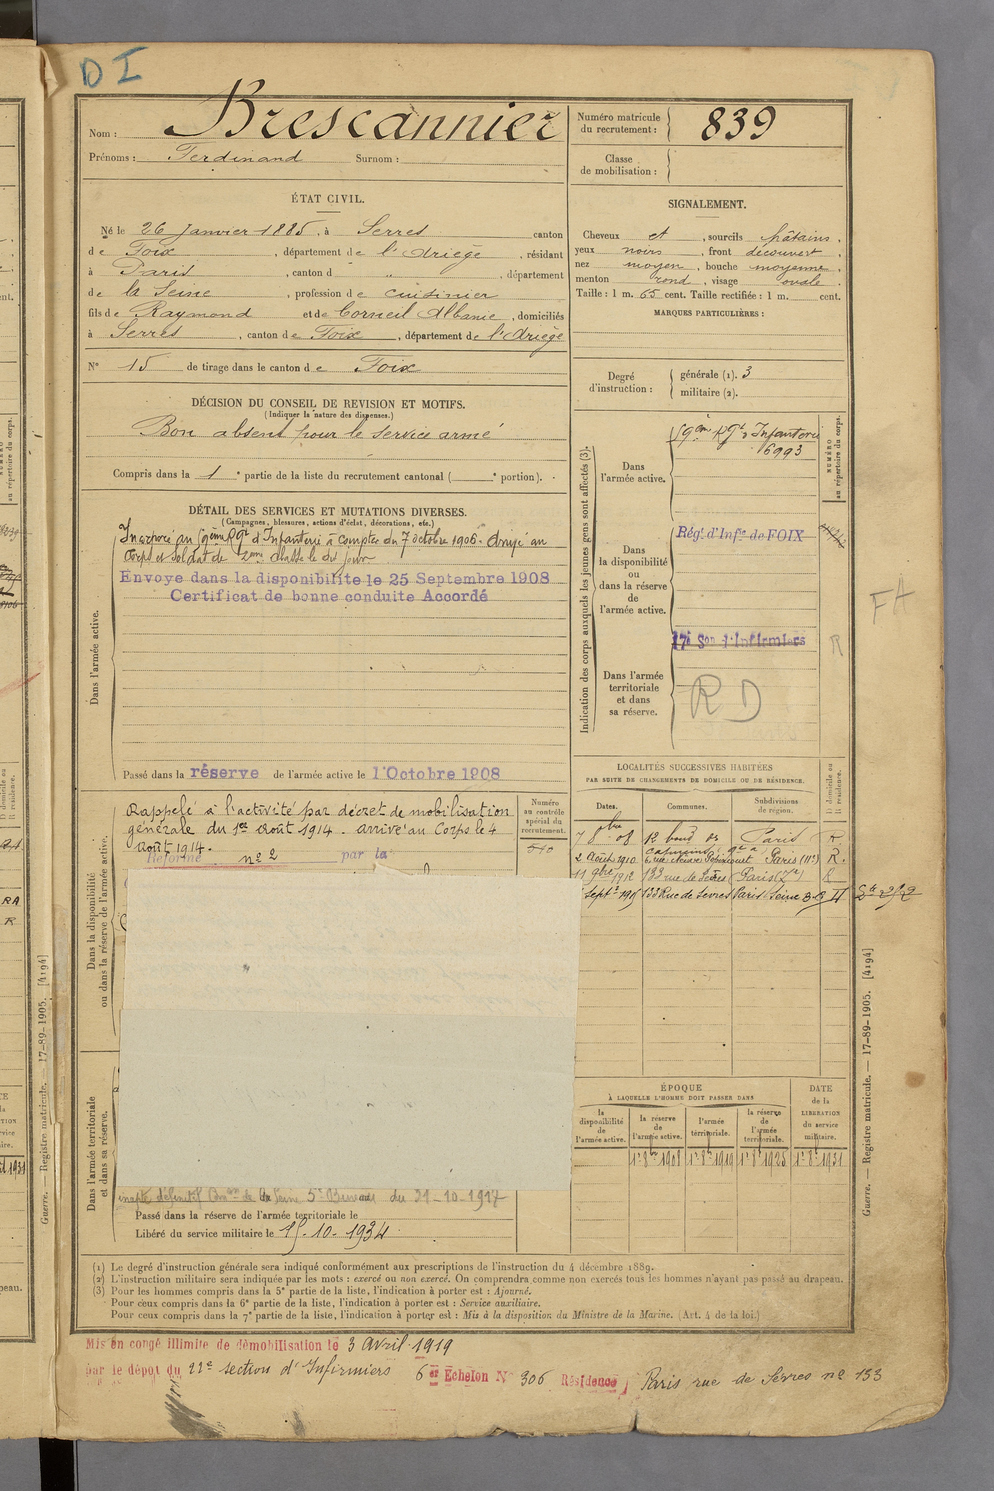 D I
Nom : Brescannier
Prénoms : Ferdinand Surnom :
Numéro matricule du recrutement : 839
Classe de mobilisation :
ÉTAT CIVIL.
Né le 26 Janvier 1885, à Serres canton
de Foix, département de l'Ariège, résidant
à Paris, canton d „, département
de la Seine, profession de cuisinier
fils de Raymond et de Corneil Albanie, domiciliés
à Serres, canton de Foix, département de l'Ariège
N° 15 de tirage dans le canton de Foix
SIGNALEMENT.
Cheveux et, sourcils châtains,
yeux noirs, front découvert,
nez moyen, bouche moyenne,
menton rond, visage ovale.
Taille : 1 m. 65 cent. Taille rectifiée : 1 m. cent.
MARQUES PARTICULIÈRES :
Degré d'instruction : générale (1). 3
militaire (2).
DÉCISION DU CONSEIL DE REVISION ET MOTIFS.
(Indiquer la nature des dispenses.)
Bon absent pour le service armé
Compris dans la 1e partie de la liste du recrutement cantonal ( e portion).
DÉTAIL DES SERVICES ET MUTATIONS DIVERSES.
(Campagnes, blessures, actions d'éclat, décorations, etc.)
Dans l'armée active.
Incorporé au 59ème Rgt d'Infanterie à compter du 7 octobre 1906. Arrivé au
Corps et soldat de 2ème classe le dit jour
Envoye dans la disponibilite le 25 Septembre 1908
Certificat de bonne conduite Accordé
Passé dans la réserve de l'armée active le 1 Octobre 1908
Indication des corps auxquels les jeunes gens sont affectés (3).
NUMÉRO au répertoire du corps.
Dans l'armée active.
59ème Rgt d'Infanterie
6993
Dans la disponibilité ou dans la réserve de l'armée active.
Régt d'Infie de FOIX
17e Son d'Infirmiers
R
FA
Dans l'armée territoriale et dans sa réserve.
RD
Dans la disponibilité ou dans la réserve de l'armée active.
Rappelé à l'activité par décret de mobilisation
générale du 1er Août 1914. Arrivé au Corps le 4
Août 1914.
Réformé n° 2 par la
Numéro au contrôle spécial du recrutement.
LOCALITÉS SUCCESSIVES HABITÉES
PAR SUITE DE CHANGEMENTS DE DOMICILE OU DE RÉSIDENCE.
Dates. Communes. Subdivisions de région. D domicile ou R résidence.
7 8bre 08 12 boud des Capucines Paris R
2 Août 1910 Popincourt Paris (11e) R.
11 9bre 1912 133 rue de Sèvres Paris
Sept. 133 Rue de Sèvres Paris Seine
Dans l'armée territoriale et dans sa réserve.
inapte définitif Comon de la Seine 5e Bureau du 31-10-1917
Passé dans la réserve de l'armée territoriale le
Libéré du service militaire le 15.10.1934
ÉPOQUE
À LAQUELLE L'HOMME DOIT PASSER DANS
la disponibilité de l'armée active. la réserve de l'armée active. l'armée territoriale. la réserve de l'armée territoriale.
DATE de la LIBÉRATION du service militaire.
1er 8bre 1908 1er 8bre 1919 1er 8bre 1925 1er 8bre 1931
(1) Le degré d'instruction générale sera indiqué conformément aux prescriptions de l'instruction du 4 décembre 1889.
(2) L'instruction militaire sera indiquée par les mots : exercé ou non exercé. On comprendra comme non exercés tous les hommes n'ayant pas passé au drapeau.
(3) Pour les hommes compris dans la 5e partie de la liste, l'indication à porter est : Ajourné.
Pour ceux compris dans la 6e partie de la liste, l'indication à porter est : Service auxiliaire.
Pour ceux compris dans la 7e partie de la liste, l'indication à porter est : Mis à la disposition du Ministre de la Marine. (Art. 4 de la loi.)
Guerre. — Registre matricule. — 17-89-1905. [4194]
Guerre. — Registre matricule. — 17-89-1905. [4194]
Mis en congé illimité de démobilisation le 3 Avril 1919
par le dépôt du 22e section d'Infirmiers 6e Echelon N° 306 Résidence, Paris rue de Sèvres n° 133